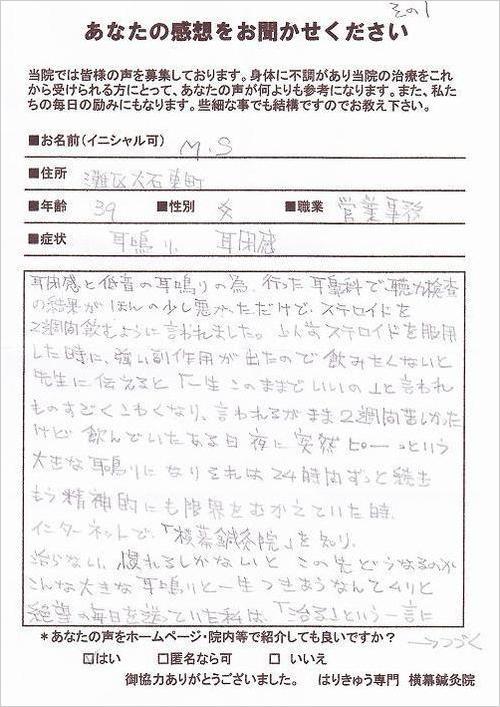 その1
あなたの感想をお聞かせください
当院では皆様の声を募集しております。身体に不調があり当院の治療をこれ
から受けられる方にとって、あなたの声が何よりも参考になります。また、私た
ちの毎日の励みにもなります。些細な事でも結構ですのでお教え下さい。
■お名前(イニシャル可) M.S
■住所 灘区大石東町
■年齢 39 ■性別 女 ■職業 営業事務
■症状 耳鳴り 耳閉感
耳閉感と低音の耳鳴りの為、行った耳鼻科で聴力検査
の結果がほんの少し悪かっただけで、ステロイドを
2週間飲むように言われました。以前ステロイドを服用
した時に、強い副作用が出たので飲みたくないと
先生に伝えると「一生このままでいいの」と言われ
ものすごくこわくなり、言われるがまま2週間苦しかった
けど飲んでいたある日夜に突然ピーーっという
大きな耳鳴りになりそれは24時間ずっと続き
もう精神的にも限界をむかえていた時、
インターネットで、「横幕鍼灸院」を知り、
治らない、慣れるしかないと この先どうなるのか
こんな大きな耳鳴りと一生つきあうなんてムリと
絶望の毎日を送っていた私は、「治る」という一言に
*あなたの声をホームページ・院内等で紹介しても良いですか? →つづく
☑はい □匿名なら可 □ いいえ
御協力ありがとうございました。 はりきゅう専門 横幕鍼灸院